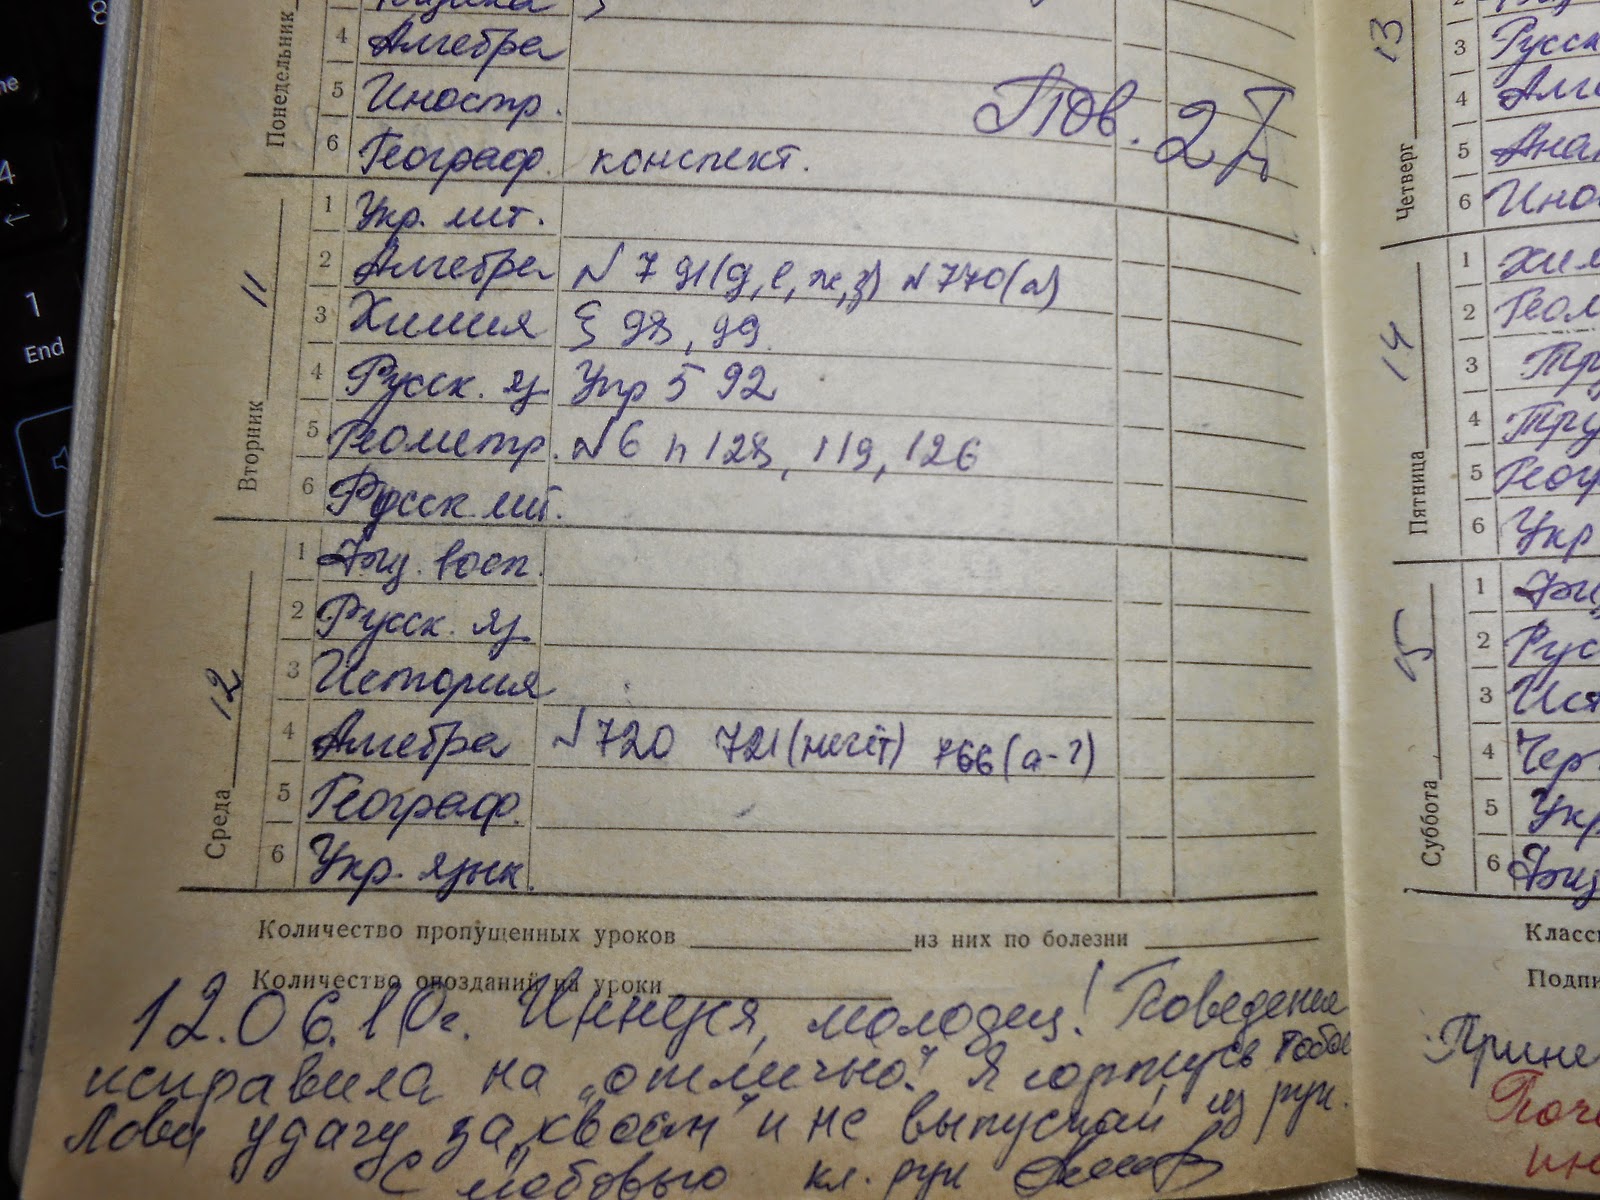 8
4
1
End
Понедельник
4 Алгебра
5 Иностр.
6 Географ. конспект.
Пов. 2
Вторник 11
1 Укр. лит.
2 Алгебра № 791(д, е, ж, з) № 770(а)
3 Химия § 98, 99
4 Русск. яз Упр 592
5 Геометр. №6 п 128, 119, 126
6 Русск. лит.
Среда 12
1 Физ. восп.
2 Русск. яз
3 История
4 Алгебра № 720 721(нечёт) 766(а-г)
5 Географ.
6 Укр. язык.
Количество пропущенных уроков из них по болезни
Количество опозданий на уроки
12.06.10г. Иннуся, молодец! Поведение
исправила на „отлично". Я горжусь тобой
Лови удачу за „хвост" и не выпускай из рук.
С любовью кл. рук
Четверг 13
3 Русск
4 Алге
5 Ана
6 Ино
Пятница 14
1 Хим
2 Геом
3 Тру
4 Тру
5 Геог
6 Укр
Суббота 15
1 Физ
2 Рус
3 Ист
4 Черт
5 Укр
6 Физ
Класс
Подпи
Прине
Поче